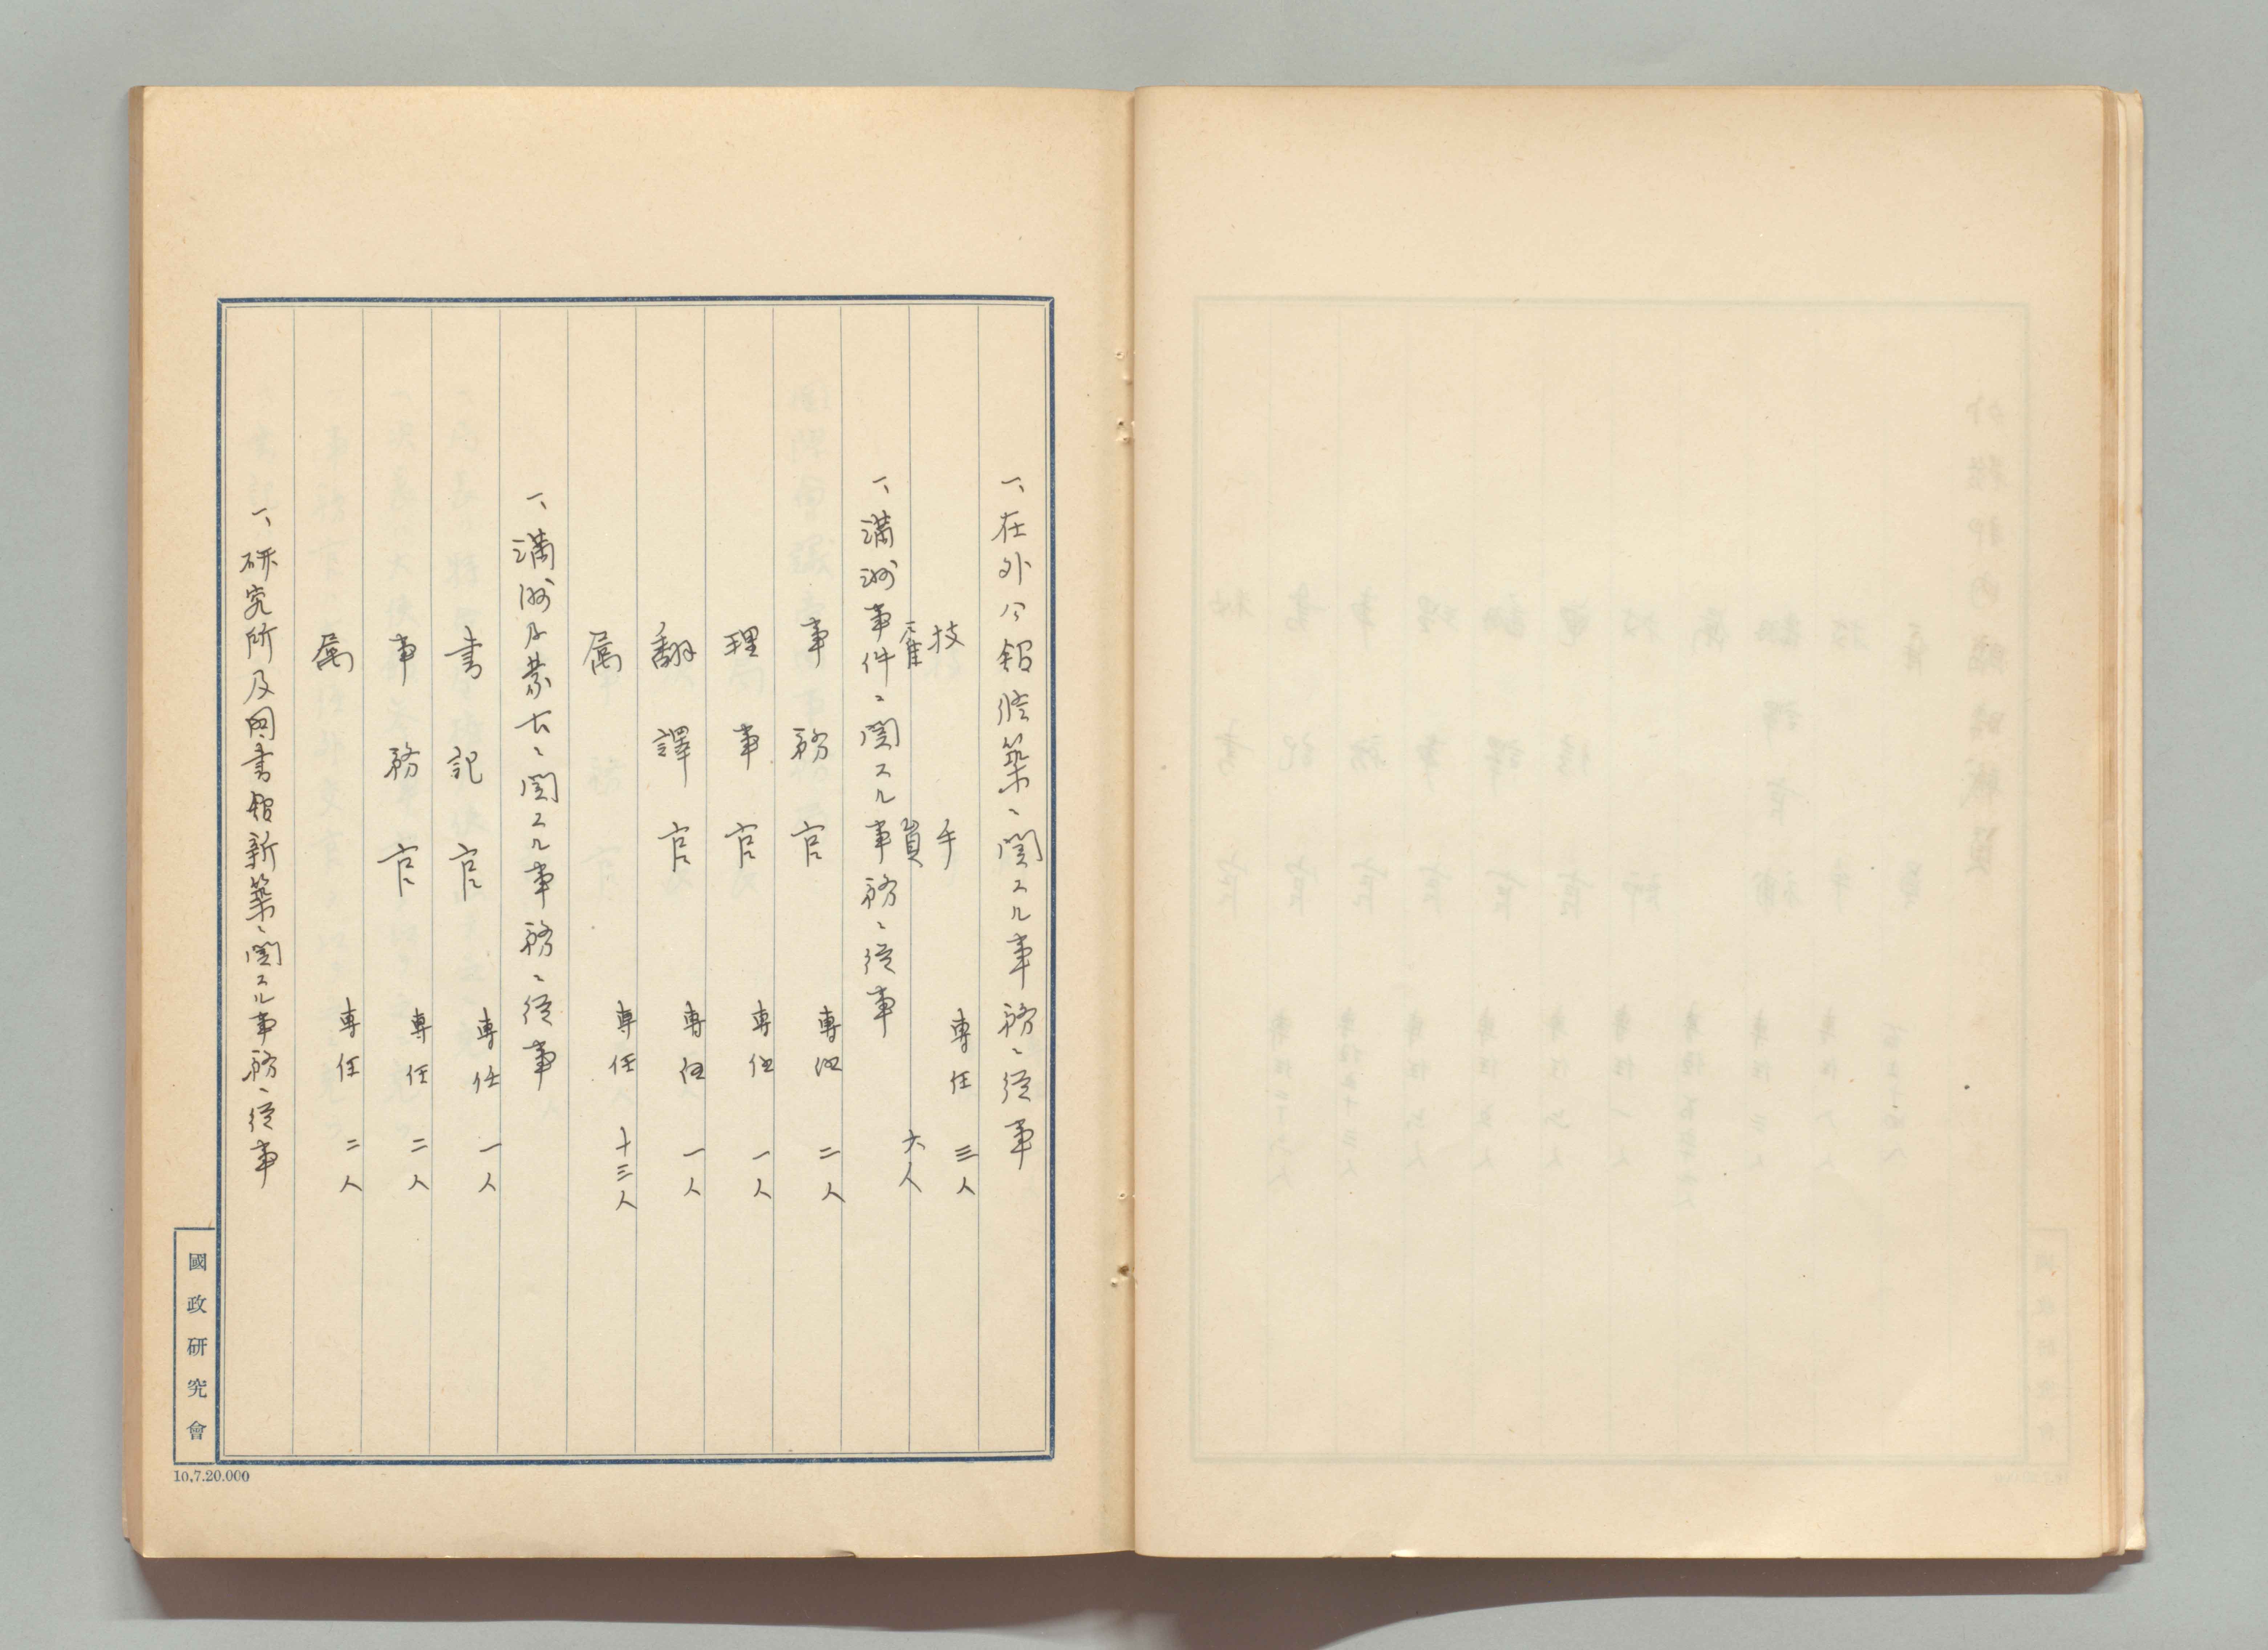 一、在外公館修築ニ関スル事務ニ從事
技手 專任 三人
雇員 六人
一、満洲事件ニ関スル事務ニ從事
事務官 專任 二人
理事官 專任 一人
翻譯官 專任 一人
属 專任 十三人
一、満洲及蒙古ニ関スル事務ニ從事
書記官 專任 一人
事務官 專任 二人
属 專任 二人
一、研究所及図書館新築ニ関スル事務ニ從事
國政研究會
10,7.20.000